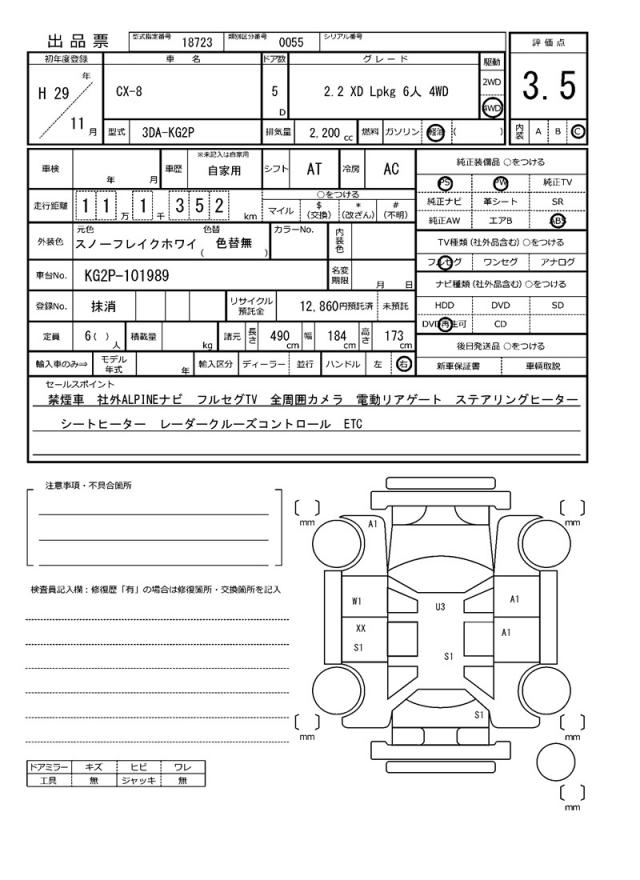 出品票 型式指定番号 18723 類別区分番号 0055 シリアル番号
評価点
3.5
内装 A B C
初年度登録 車名 ドア数 グレード 駆動
H 29 年 11 月
CX-8 5 D 2.2 XD Lpkg 6人 4WD
2WD
4WD
型式 3DA-KG2P 排気量 2,200 cc 燃料 ガソリン 軽油 ( )
車検 年 月 車歴 ※未記入は自家用 自家用 シフト AT 冷房 AC
走行距離 1 1 万 1 千 3 5 2 km
○をつける
マイル $ (交換) * (改ざん) # (不明)
外装色 元色 スノーフレイクホワイ 色替 ( 色替無 ) カラーNo. 内装色
車台No. KG2P-101989 名変期限 月 日
登録No. 抹消 リサイクル預託金 12,860円預託済 未預託
定員 6( )人 積載量 kg 諸元 長さ 490cm 幅 184cm 高さ 173cm
輸入車のみ⇒ モデル年式 年 輸入区分 ディーラー 並行 ハンドル 左 右
純正装備品 ○をつける
PS PW 純正TV
純正ナビ 革シート SR
純正AW エアB ABS
TV種類 (社外品含む) ○をつける
フルセグ ワンセグ アナログ
ナビ種類 (社外品含む) ○をつける
HDD DVD SD
DVD再生可 CD
後日発送品 ○をつける
新車保証書 車輌取説
セールスポイント
禁煙車 社外ALPINEナビ フルセグTV 全周囲カメラ 電動リアゲート ステアリングヒーター
シートヒーター レーダークルーズコントロール ETC
注意事項・不具合箇所
検査員記入欄：修復歴「有」の場合は修復箇所・交換箇所を記入
ドアミラー キズ ヒビ ワレ
工具 無 ジャッキ 無
mm
mm
A1
W1 U3 A1
XX A1
S1 S1
S1
mm
mm
mm